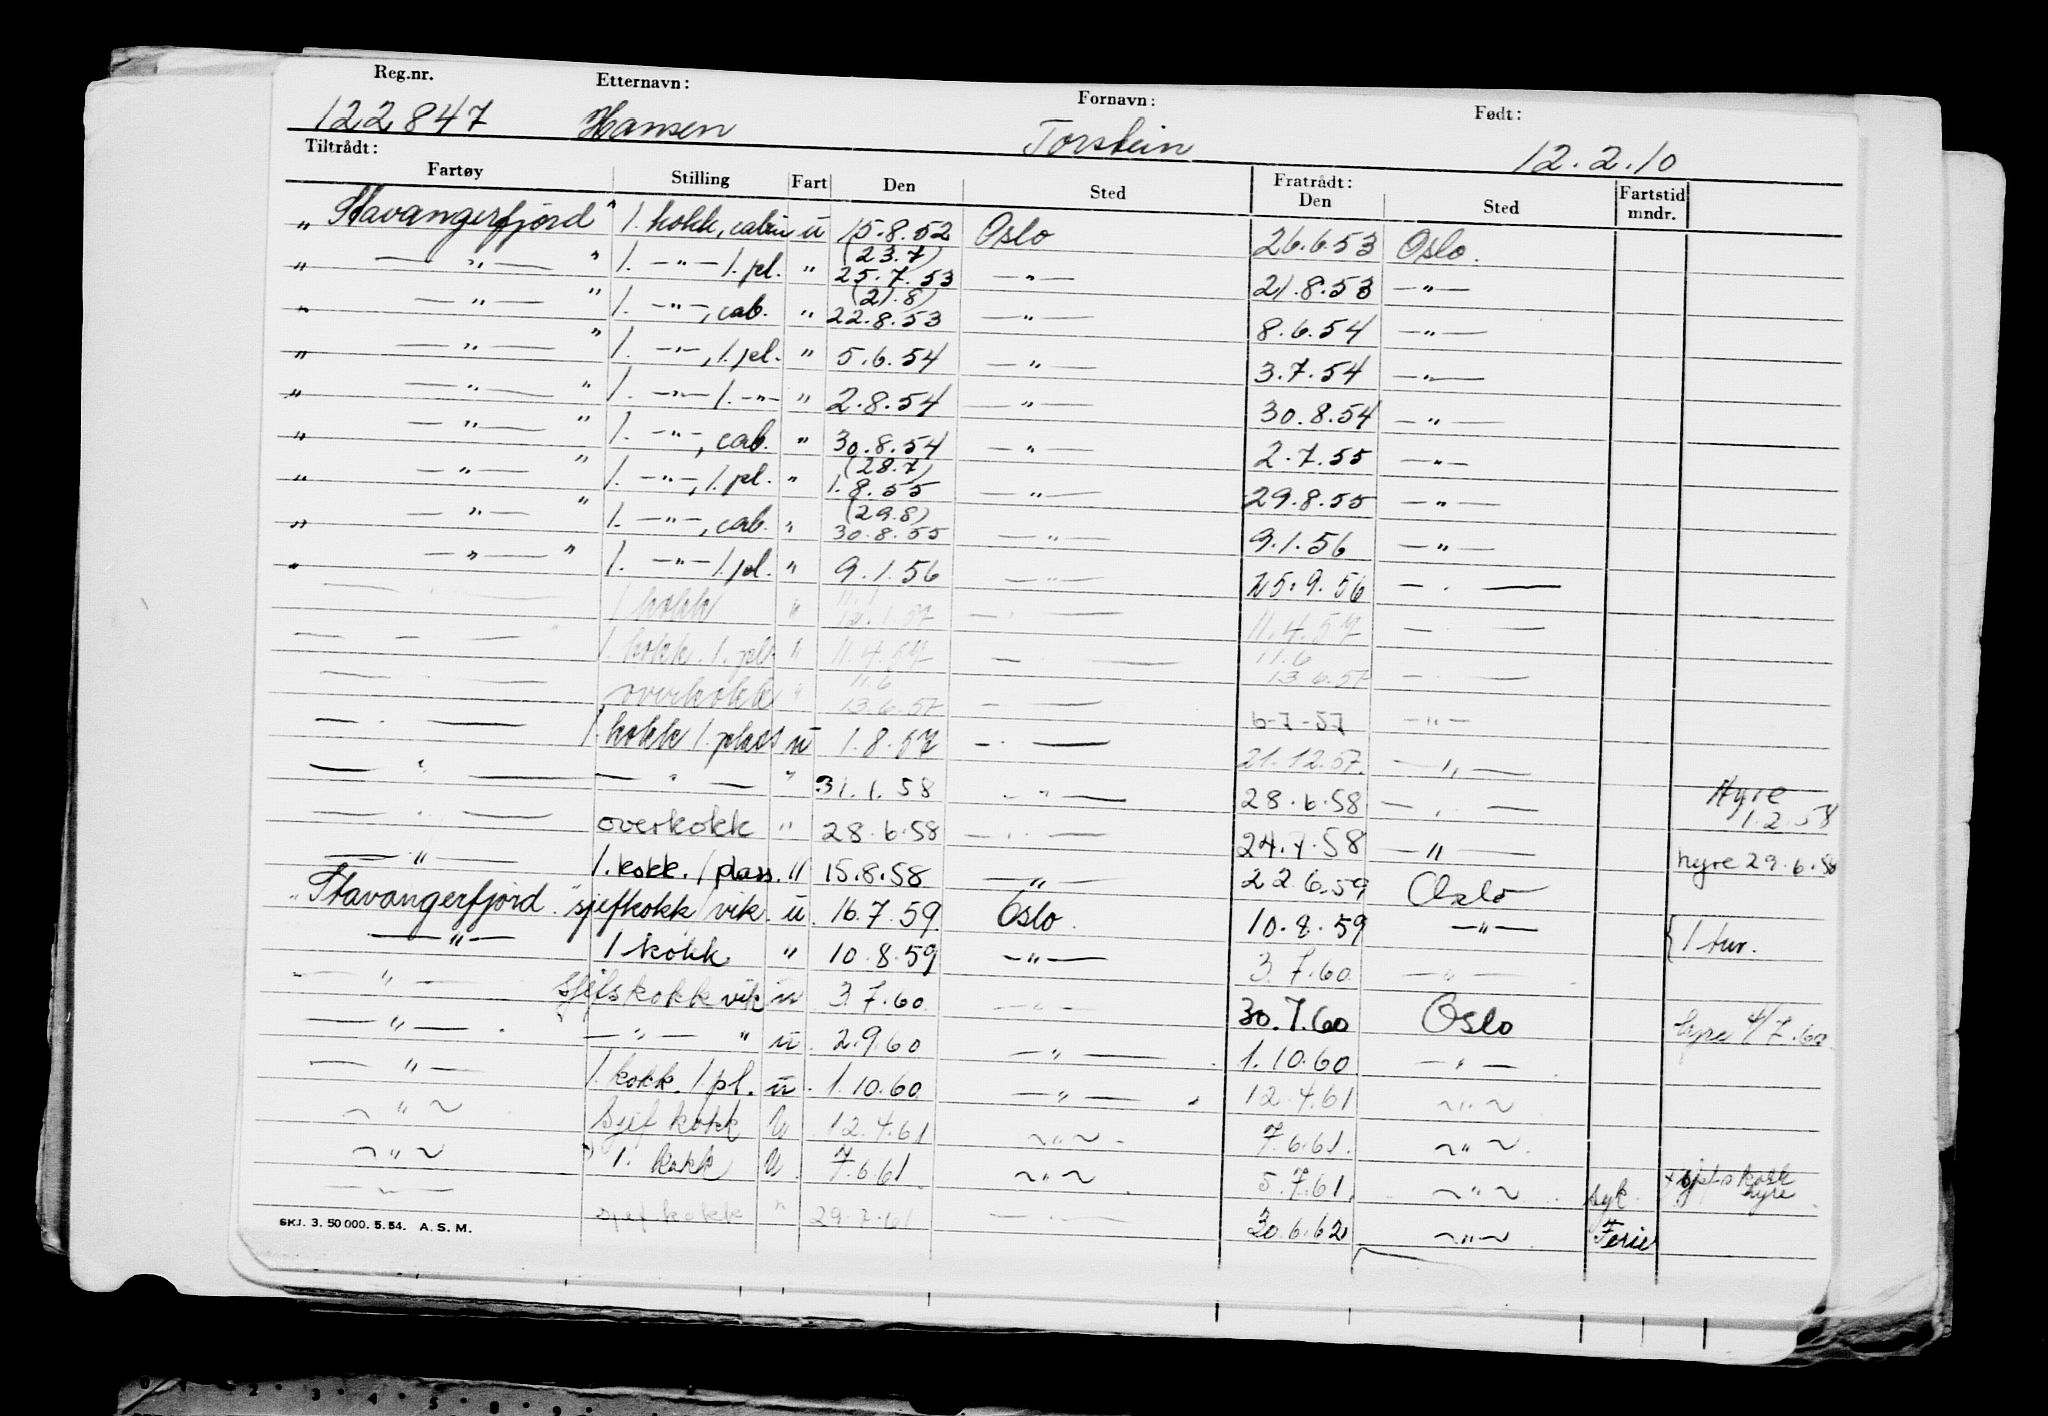 Reg.nr. Etternavn: Fornavn: Født:
122847 Hansen Torstein 12.2.10
Tiltrådt: Fratrådt:
Fartøy Stilling Fart Den Sted Den Sted Fartstid mndr.
„ Stavangerfjord " 1. kokk, cabin u 15.8.52 Oslo 26.6.53 Oslo.
„ — „ — " 1. —„— 1. pl. " (23.7) 25.7.53 —„— 21.8.53 —„—
„ — „ — " 1. —„—, cab. " (21.8) 22.8.53 —„— 8.6.54 —„—
„ — „ — " 1. —„—, 1. pl. " 5.6.54 —„— 3.7.54 —„—
„ — „ — " 1. —„— 1. —„— " 2.8.54 —„— 30.8.54 —„—
„ — „ — " 1. —„—, cab. " 30.8.54 —„— 2.7.55 —„—
„ — „ — " 1. —„—, 1. pl. " (28.7) 1.8.55 —„— 29.8.55 —„—
„ — „ — " 1. —„—, cab. " (29.8) 30.8.55 —„— 9.1.56 —„—
„ — „ — " 1. —„— 1. pl. " 9.1.56 —„— 25.9.56 — . —
— „ — 1 kokk " 11.1 12.1.57 — . — 11.4.57 — . —
— „ — " 1. kokk. 1. pl. " 11.4.57 — . — 11.6 13.6.57 — . —
— . — overkokk " 11.6 13.6.57 — . — 6-7-57 —„—
— . — 1. kokk 1. plass u 1.8.57 — . — 21.12.57. —„—
— „ — — „ — " 31.1.58 —„— 28.6.58 — . — Hyre 1.2.58
— . — overkokk " 28.6.58 — . — 24.7.58 —„— hyre 29.6.58
— „ — 1. kokk. 1 plass. " 15.8.58 —„— 22.6.59 Oslo
„ Stavangerfjord. " sjefkokk/vik. u. 16.7.59. Oslo. 10.8.59 —„— { 1 tur.
— „ — 1 kokk " 10.8.59 —„— 3.7.60. —„—
— „ — sjefskokk vik u 3.7.60. —„— 30.7.60 Oslo hyre 4/7.60
— „ — . — „ — " u. 2.9.60 — „ — . 1.10.60. —„—
— „ — 1. kokk. 1. pl. u. 1.10.60. — „ — . 12.4.61 ~„~
~„~ Sjef kokk U 12.4.61 ~„~. 7.6.61. ~„~.
~„~ 1. kokk U. 7.6.61. ~„~. 5.7.61. ~„~ syk. + sjefskokk hyre
— „ — sjef kokk " 29.7.61 — . — 30.6.62 ~„~ Ferie
SKJ. 3. 50 000. 5. 54. A. S. M.
0 1 2 3 4 5